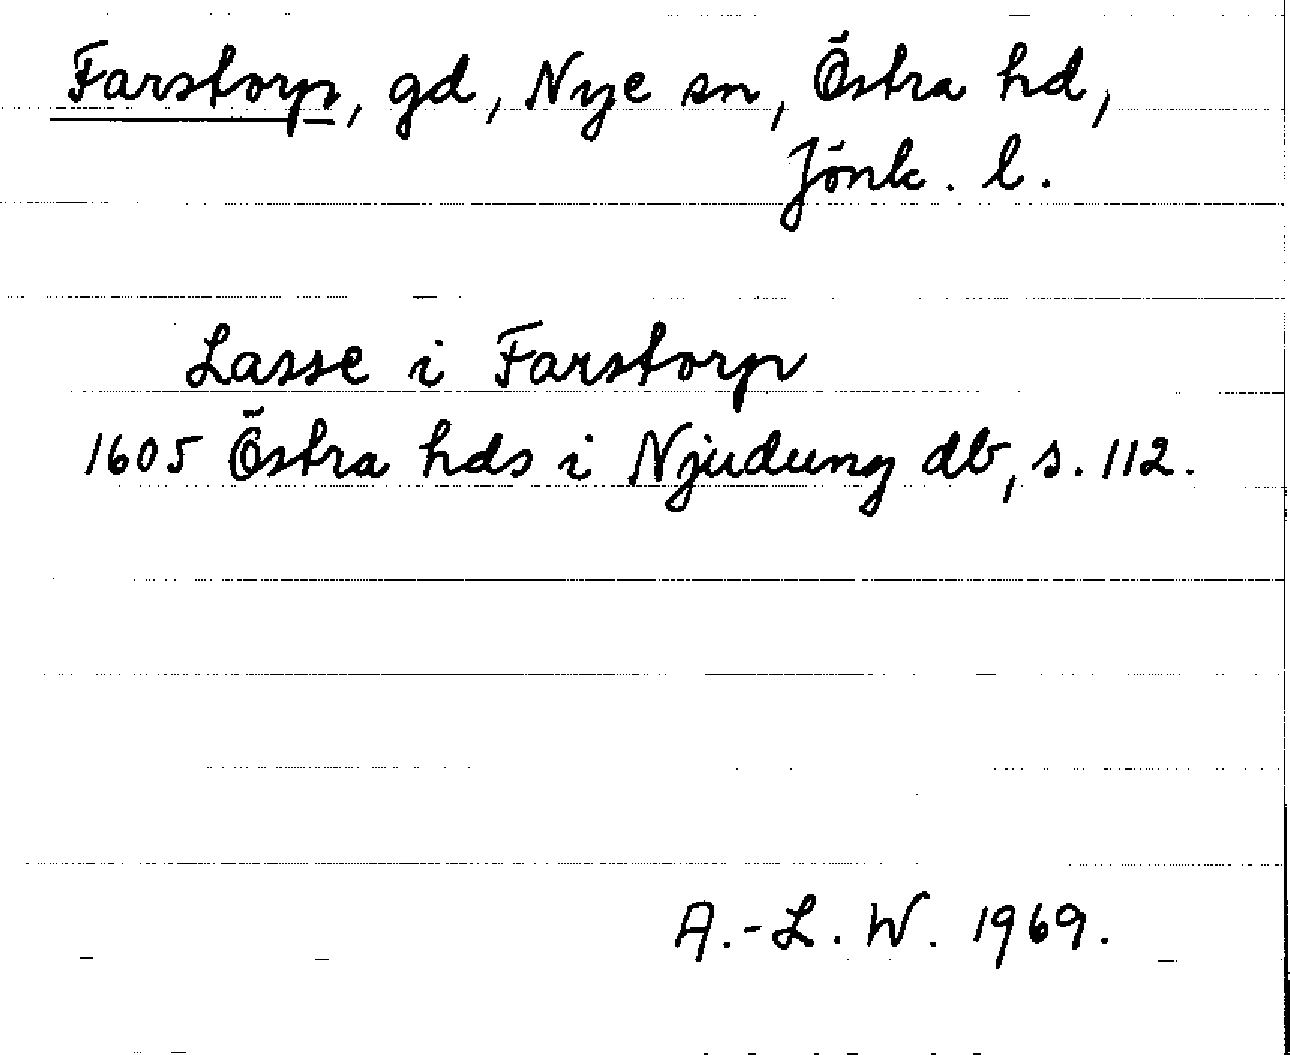 Farstorp, gd, Nye sn, Östra hd,
Jönk. l.
Lasse i Farstorp
1605 Östra hds i Njudung db, s. 112.
A.-L. W. 1969.